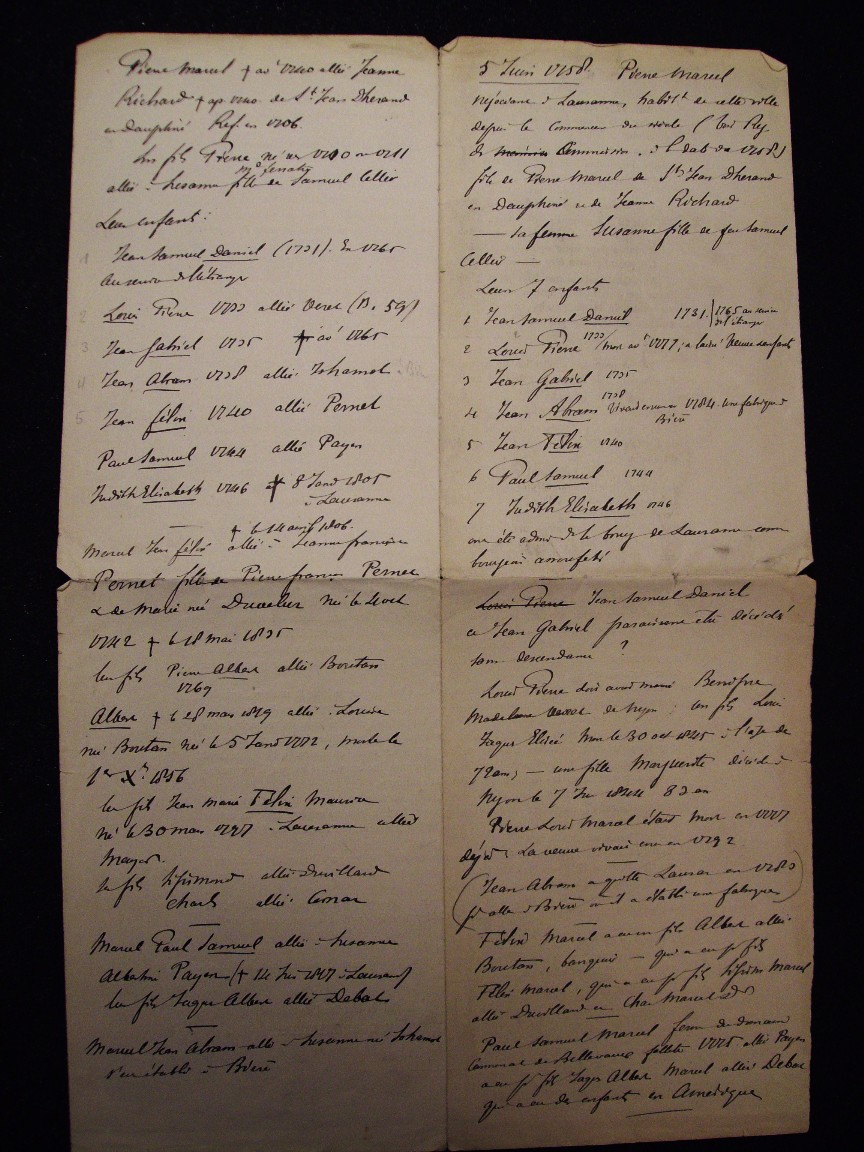 Pierre Marcel † av' 1740 allié Jeanne
Richard † ap. 1740. de St Jean Dherand
en Dauphiné Ref. en 1706.
Un fils Pierre né en 1710 ou 1711
allié à Susanne fille de Samuel Cellier
Leur enfant :
1 Jean Samuel Daniel (1731). En 1765
au service de l'étranger
2 Louis Pierre 1733 allié Veret (B. 59)
3 Jean Gabriel 1735 † av' 1765
4 Jean Abram 1738 allié Johannot
5. Jean Félix 1740 allié Pernet
Paul Samuel 1744 allié Payen
Judith Elisabeth 1746 † 8 Janv 1805
à Lausanne
† le 14 avril 1806.
Marcel Jean Félix allié à Jeanne françoise
Pernet fille de Pierre françois Pernet
& de Marie née Duvelux née le 4 oct
1742 † le 18 mai 1835
Un fils Pierre Albert allié Boutan
1769
Albert † le 28 mars 1819 allié à Louise
née Boutan née le 5 Janv 1772, morte le
1er X. 1856
Un fils Jean Marie Félix Maurice
né le 30 mars 1797 à Lausanne allié
Mayor.
Un fils Sigismond allié Duvillard
Charles allié
Marcel Paul Samuel allié à Susanne
Payen († 14 1817 à Lausanne)
Un fils Jaques Albert allié Debar
Marcel Jean Abram allié à Susanne née Johannot
s'est établi à Bière
5 Juin 1758 Pierre Marcel
Négociant à Lausanne, habitt de cette ville
depuis le commencement du siècle (Voir Reg.
de 1758)
fils de Pierre Marcel de St Jean Dherand
en Dauphiné et de Jeanne Richard
— sa femme Susanne fille de feu Samuel
Cellier —
Leurs 7 enfants
1 Jean Samuel Daniel 1731. 1765 au service de l'étranger
2 Louis Pierre 1733 / mort av' 1777, a laissé veuve & enfant
3 Jean Gabriel 1735
4 Jean Abram 1738 Vivait encore en 1784. une fabrique à
Bière
5 Jean Félix 1740
6 Paul Samuel 1744
7 Judith Elisabeth 1746
ont été admis de la bourg de Lausanne comme
bourgeois
Louis Pierre Jean Samuel Daniel
et Jean Gabriel paraissent être décédés
sans descendance ?
Louis Pierre doit avoir marié
Madelaine Veret de Nyon ; un fils Louis
Jaques Elisée mort le 30 oct 1845 à l'age de
72 ans, — une fille Marguerite décédée à
Nyon le 7 1844 83 an
Pierre Louis Marcel étant mort en 1777
déjà : La veuve vivait encore en 1792
(Jean Abram a quitté Lausanne en 1780
pr aller à Bière où il a établi une fabrique)
Félix Marcel a eu un fils Albert allié
Boutan, banquier — qui a eu pr fils
Félix Marcel, qui a eu pr fils Sigismond Marcel
allié Duvillard et Charles Marcel
Paul Samuel Marcel
1775 allié Payen
a eu pr fils Jaques Albert Marcel allié Debar
qui a eu des enfants en Amérique